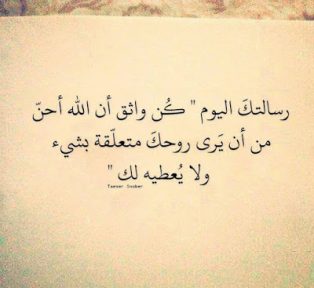 رسالتكَ اليوم " كُن واثق أن الله أحنّ
من أن يَرى روحكَ متعلّقة بشيء
ولا يُعطيه لك "
Tamer Saber